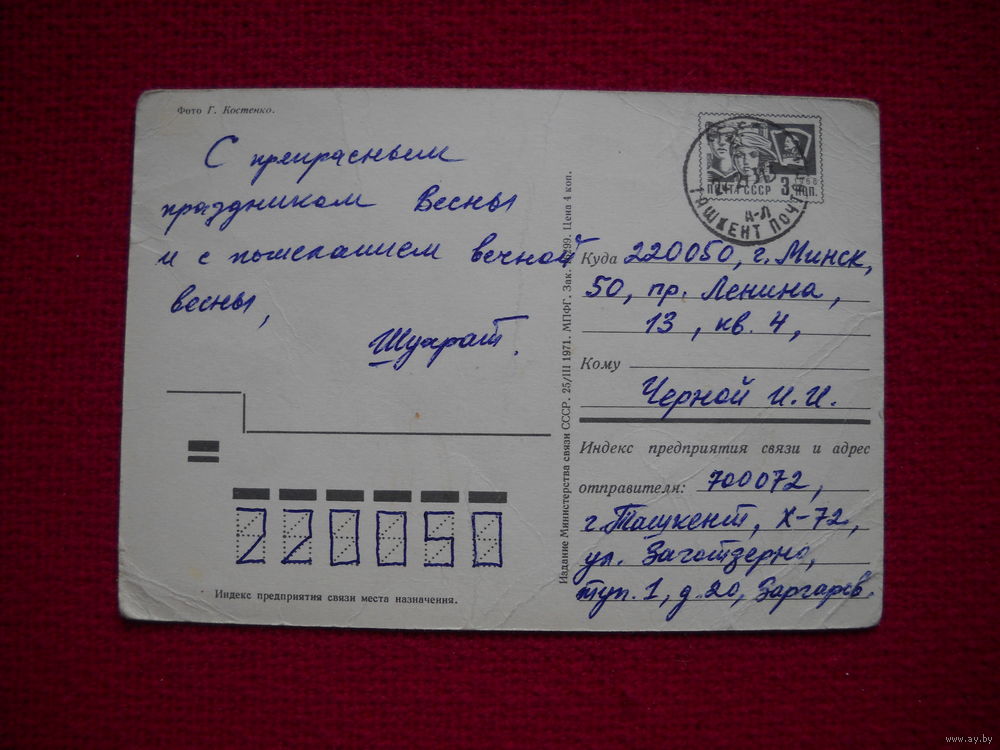 Фото Г. Костенко.
С прекрасным
праздником Весны
и с пожеланием вечной
весны,
Шухрат.
220050
Индекс предприятия связи места назначения.
Издание Министерства связи СССР. 25/III 1971. МПФГ. Зак. 299. Цена 4 коп.
ПОЧТА СССР 3 КОП.
1966
ТАШКЕНТ ПОЧТАМТ
А-Л
Куда 220050, г. Минск,
50, пр. Ленина,
13, кв. 4,
Кому
Черной И. И.
Индекс предприятия связи и адрес
отправителя: 700072,
г. Ташкент, Х-72,
ул. Заготзерно,
туп. 1, д. 20, Заргаров.
www.ay.by